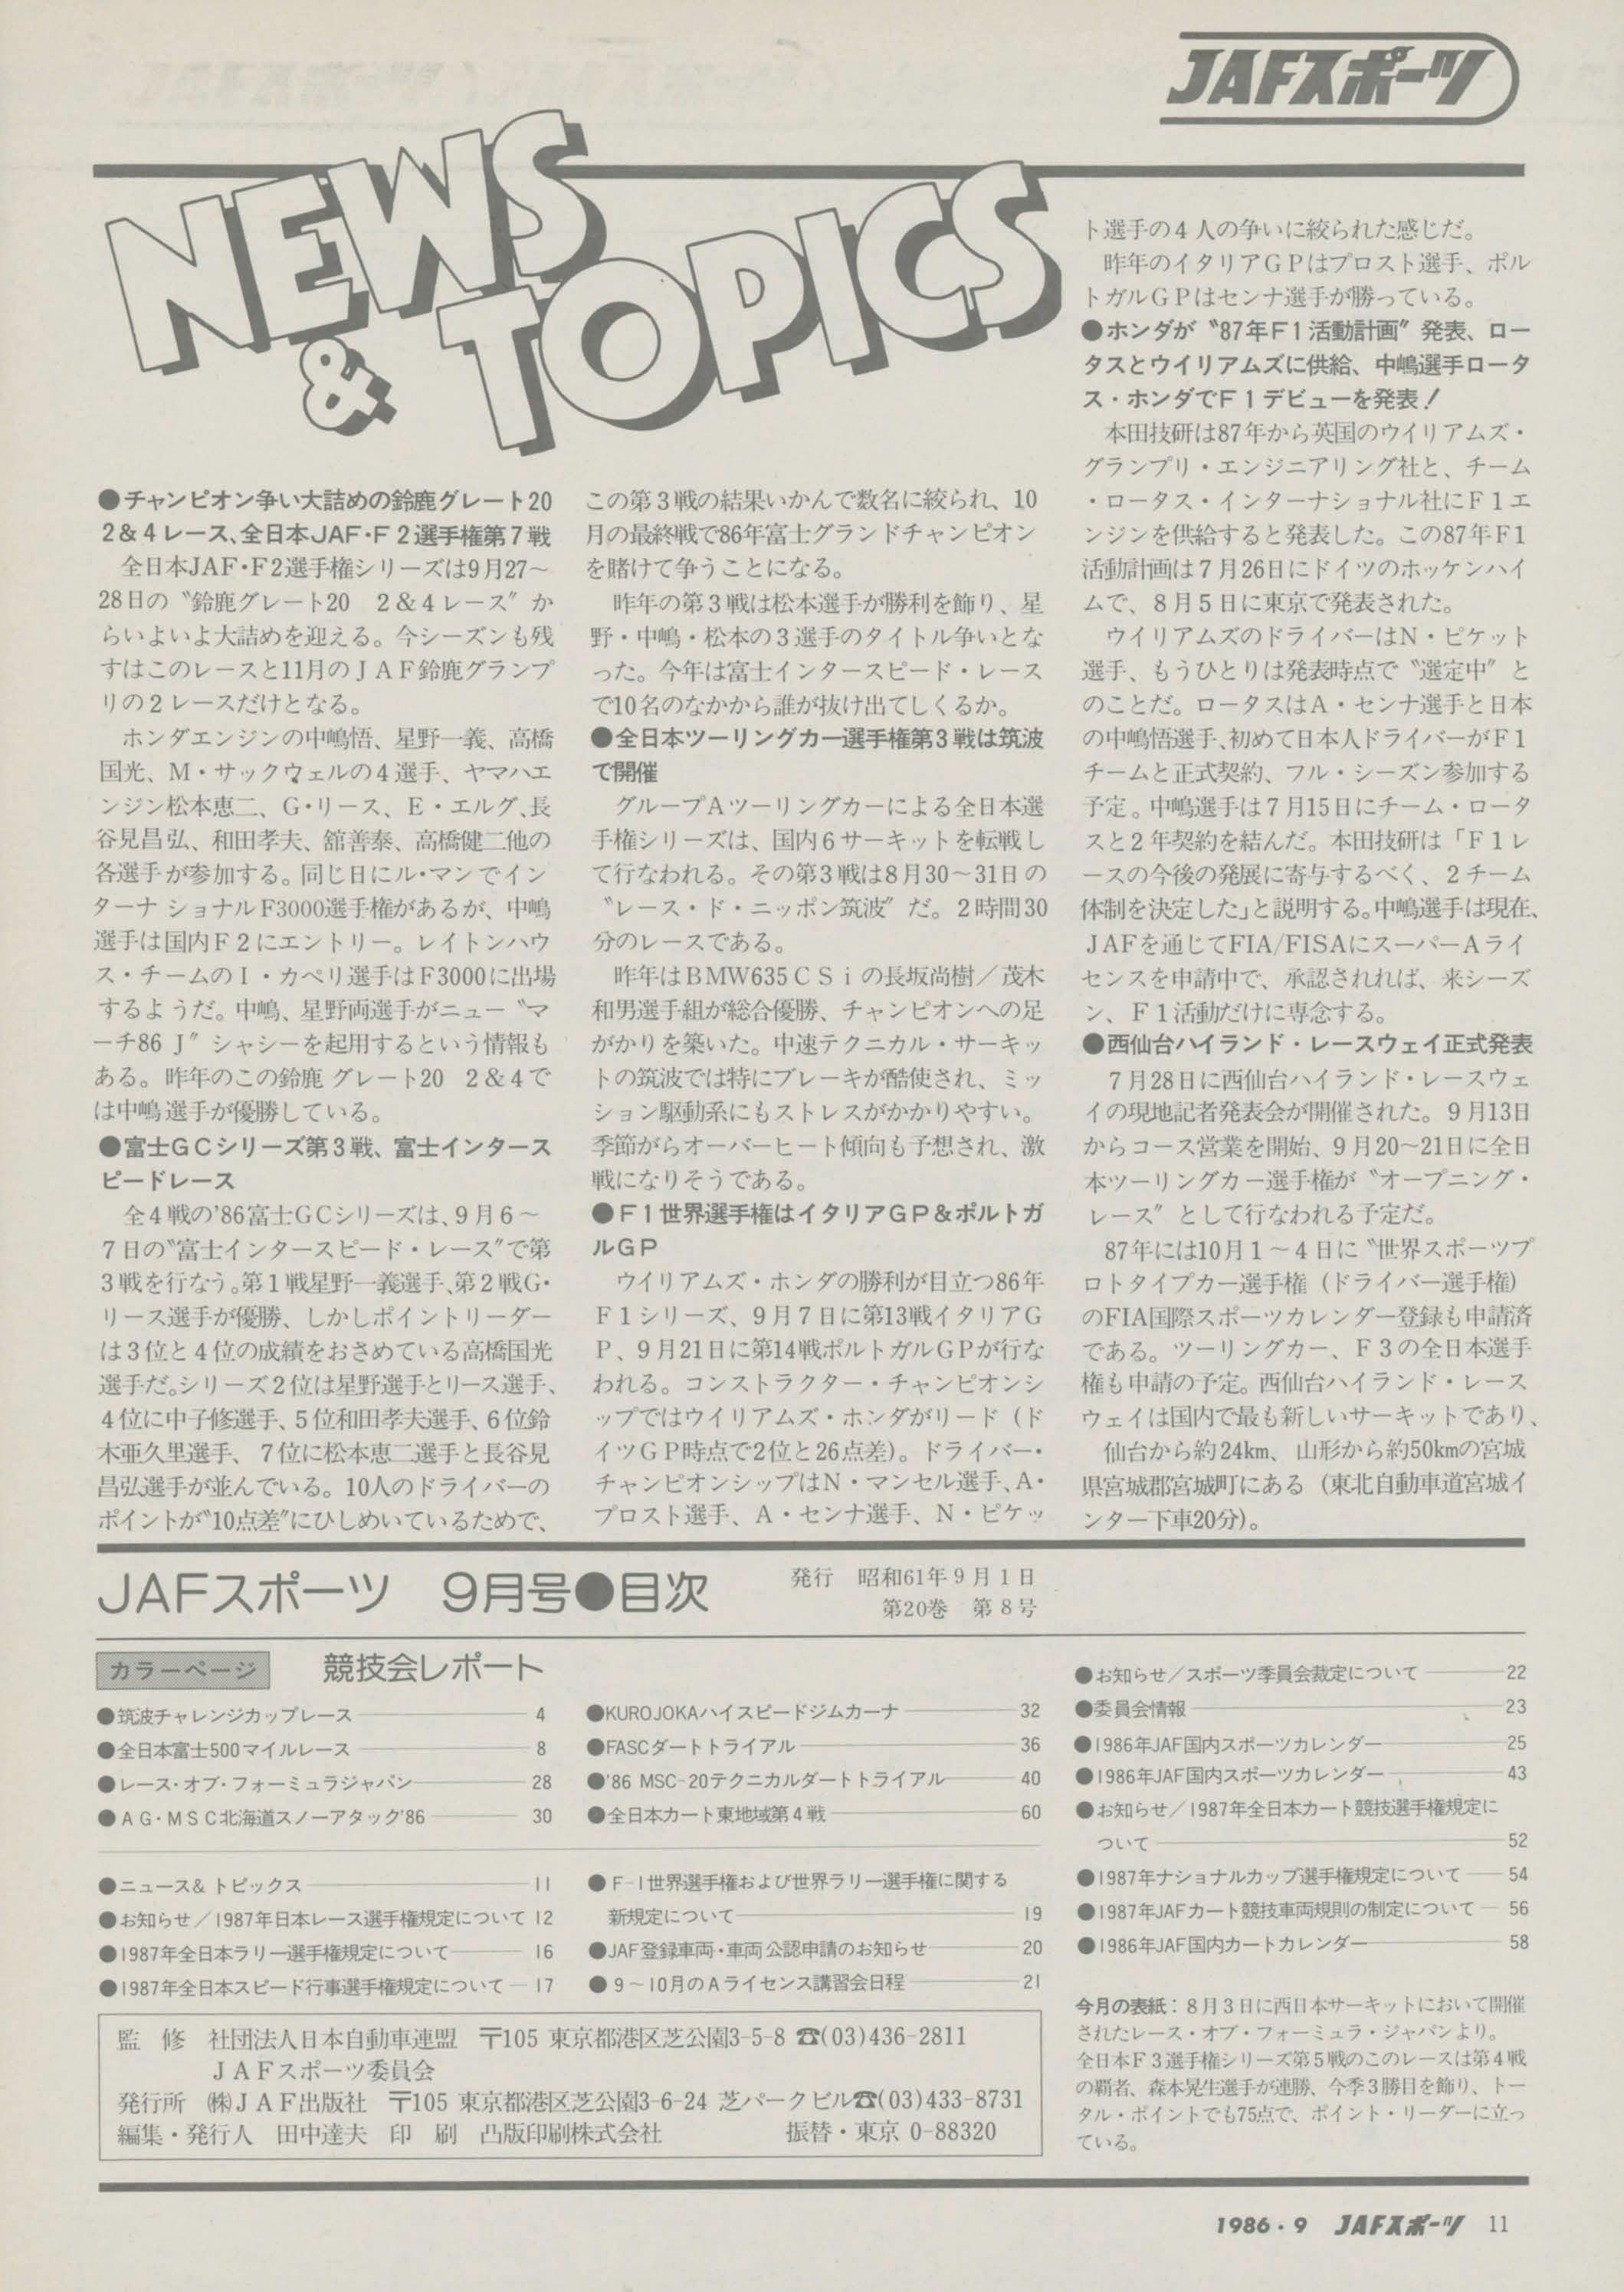 JAFスポーツ
NEWS
& TOPICS
●チャンピオン争い大詰めの鈴鹿グレート20
2&4レース、全日本JAF・F2選手権第7戦
全日本JAF・F2選手権シリーズは9月27〜
28日の〝鈴鹿グレート20　2&4レース〟か
らいよいよ大詰めを迎える。今シーズンも残
すはこのレースと11月のJAF鈴鹿グランプ
リの2レースだけとなる。
ホンダエンジンの中嶋悟、星野一義、高橋
国光、M・サックウェルの4選手、ヤマハエ
ンジン松本恵二、G・リース、E・エルグ、長
谷見昌弘、和田孝夫、舘善泰、高橋健二他の
各選手が参加する。同じ日にル・マンでイン
ターナショナルF3000選手権があるが、中嶋
選手は国内F2にエントリー。レイトンハウ
ス・チームのI・カペリ選手はF3000に出場
するようだ。中嶋、星野両選手がニュー〝マ
ーチ86J〟シャシーを起用するという情報も
ある。昨年のこの鈴鹿グレート20　2&4で
は中嶋選手が優勝している。
●富士GCシリーズ第3戦、富士インタース
ピードレース
全4戦の'86富士GCシリーズは、9月6〜
7日の〝富士インタースピード・レース〟で第
3戦を行なう。第1戦星野一義選手、第2戦G・
リース選手が優勝、しかしポイントリーダー
は3位と4位の成績をおさめている高橋国光
選手だ。シリーズ2位は星野選手とリース選手、
4位に中子修選手、5位和田孝夫選手、6位鈴
木亜久里選手、7位に松本恵二選手と長谷見
昌弘選手が並んでいる。10人のドライバーの
ポイントが〝10点差〟にひしめいているためで、
この第3戦の結果いかんで数名に絞られ、10
月の最終戦で86年富士グランドチャンピオン
を賭けて争うことになる。
昨年の第3戦は松本選手が勝利を飾り、星
野・中嶋・松本の3選手のタイトル争いとな
った。今年は富士インタースピード・レース
で10名のなかから誰が抜け出てしくるか。
●全日本ツーリングカー選手権第3戦は筑波
で開催
グループAツーリングカーによる全日本選
手権シリーズは、国内6サーキットを転戦し
て行なわれる。その第3戦は8月30〜31日の
〝レース・ド・ニッポン筑波〟だ。2時間30
分のレースである。
昨年はBMW635CSiの長坂尚樹／茂木
和男選手組が総合優勝、チャンピオンへの足
がかりを築いた。中速テクニカル・サーキッ
トの筑波では特にブレーキが酷使され、ミッ
ション駆動系にもストレスがかかりやすい。
季節がらオーバーヒート傾向も予想され、激
戦になりそうである。
●F1世界選手権はイタリアGP&ポルトガ
ルGP
ウイリアムズ・ホンダの勝利が目立つ86年
F1シリーズ、9月7日に第13戦イタリアG
P、9月21日に第14戦ポルトガルGPが行な
われる。コンストラクター・チャンピオンシ
ップではウイリアムズ・ホンダがリード（ド
イツGP時点で2位と26点差）。ドライバー・
チャンピオンシップはN・マンセル選手、A・
プロスト選手、A・センナ選手、N・ピケッ
ト選手の4人の争いに絞られた感じだ。
昨年のイタリアGPはプロスト選手、ポル
トガルGPはセンナ選手が勝っている。
●ホンダが〝87年F1活動計画〟発表、ロー
タスとウイリアムズに供給、中嶋選手ロータ
ス・ホンダでF1デビューを発表！
本田技研は87年から英国のウイリアムズ・
グランプリ・エンジニアリング社と、チーム
・ロータス・インターナショナル社にF1エ
ンジンを供給すると発表した。この87年F1
活動計画は7月26日にドイツのホッケンハイ
ムで、8月5日に東京で発表された。
ウイリアムズのドライバーはN・ピケット
選手、もうひとりは発表時点で〝選定中〟と
のことだ。ロータスはA・センナ選手と日本
の中嶋悟選手、初めて日本人ドライバーがF1
チームと正式契約、フル・シーズン参加する
予定。中嶋選手は7月15日にチーム・ロータ
スと2年契約を結んだ。本田技研は「F1レ
ースの今後の発展に寄与するべく、2チーム
体制を決定した」と説明する。中嶋選手は現在、
JAFを通じてFIA/FISAにスーパーAライ
センスを申請中で、承認されれば、来シーズ
ン、F1活動だけに専念する。
●西仙台ハイランド・レースウェイ正式発表
7月28日に西仙台ハイランド・レースウェ
イの現地記者発表会が開催された。9月13日
からコース営業を開始、9月20〜21日に全日
本ツーリングカー選手権が〝オープニング・
レース〟として行なわれる予定だ。
87年には10月1〜4日に〝世界スポーツプ
ロトタイプカー選手権（ドライバー選手権）
のFIA国際スポーツカレンダー登録も申請済
である。ツーリングカー、F3の全日本選手
権も申請の予定。西仙台ハイランド・レース
ウェイは国内で最も新しいサーキットであり、
仙台から約24km、山形から約50kmの宮城
県宮城郡宮城町にある（東北自動車道宮城イ
ンター下車20分）。
JAFスポーツ　9月号●目次
発行　昭和61年9月1日
第20巻　第8号
カラーページ　競技会レポート
●筑波チャレンジカップレース 4
●全日本富士500マイルレース 8
●レース・オブ・フォーミュラジャパン 28
●AG・MSC北海道スノーアタック'86 30
●KUROJOKAハイスピードジムカーナ 32
●FASCダートトライアル 36
●'86 MSC-20テクニカルダートトライアル 40
●全日本カート東地域第4戦 60
●ニュース&トピックス 11
●お知らせ／1987年日本レース選手権規定について 12
●1987年全日本ラリー選手権規定について 16
●1987年全日本スピード行事選手権規定について 17
●F-1世界選手権および世界ラリー選手権に関する
新規定について 19
●JAF登録車両・車両公認申請のお知らせ 20
●9〜10月のAライセンス講習会日程 21
●お知らせ／スポーツ委員会裁定について 22
●委員会情報 23
●1986年JAF国内スポーツカレンダー 25
●1986年JAF国内スポーツカレンダー 43
●お知らせ／1987年全日本カート競技選手権規定に
ついて 52
●1987年ナショナルカップ選手権規定について 54
●1987年JAFカート競技車両規則の制定について 56
●1986年JAF国内カートカレンダー 58
監　修　社団法人日本自動車連盟　〒105 東京都港区芝公園3-5-8 ☎(03)436-2811
JAFスポーツ委員会
発行所　㈱JAF出版社　〒105 東京都港区芝公園3-6-24 芝パークビル☎(03)433-8731
編集・発行人　田中達夫　印　刷　凸版印刷株式会社　振替・東京 0-88320
今月の表紙：8月3日に西日本サーキットにおいて開催
されたレース・オブ・フォーミュラ・ジャパンより。
全日本F3選手権シリーズ第5戦のこのレースは第4戦
の覇者、森本晃生選手が連勝、今季3勝目を飾り、トー
タル・ポイントでも75点で、ポイント・リーダーに立っ
ている。
1986・9　JAFスポーツ　11